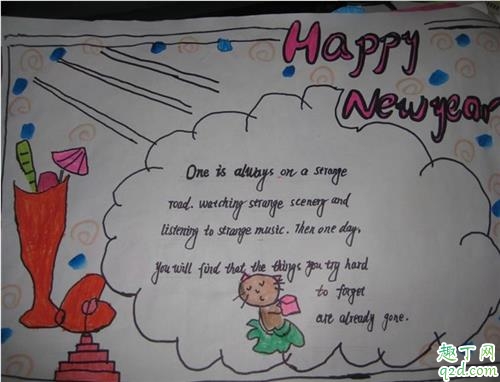 Happy
New year
One is always on a strange
road. watching strange scenery and
listening to strange music. Then one day,
you will find that the things you try hard
to forget
are already gone.
趣丁网
qzd.com